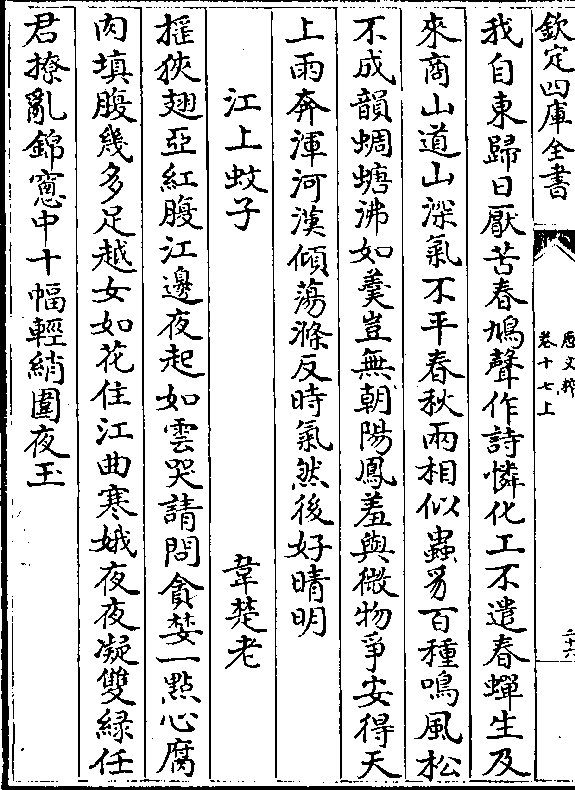 欽定四庫全書
唐文粹
卷十七上
二十六
我自東歸日厭苦春鳩聲作詩憐化工不遣春蟬生及
來商山道山深氣不平春秋兩相似蟲豸百種鳴風松
不成韻蜩螗沸如羹豈無朝陽鳳羞與微物爭安得天
上雨奔渾河漢傾蕩滌反時氣然後好晴明
江上蚊子 韋楚老
揺狹翅亞紅腹江邊夜起如雲哭請問貪婪一㸃心腐
肉填腹幾多足越女如花住江曲寒娥夜夜凝雙緑任
君撩亂錦窓中十幅輕綃圍夜玉